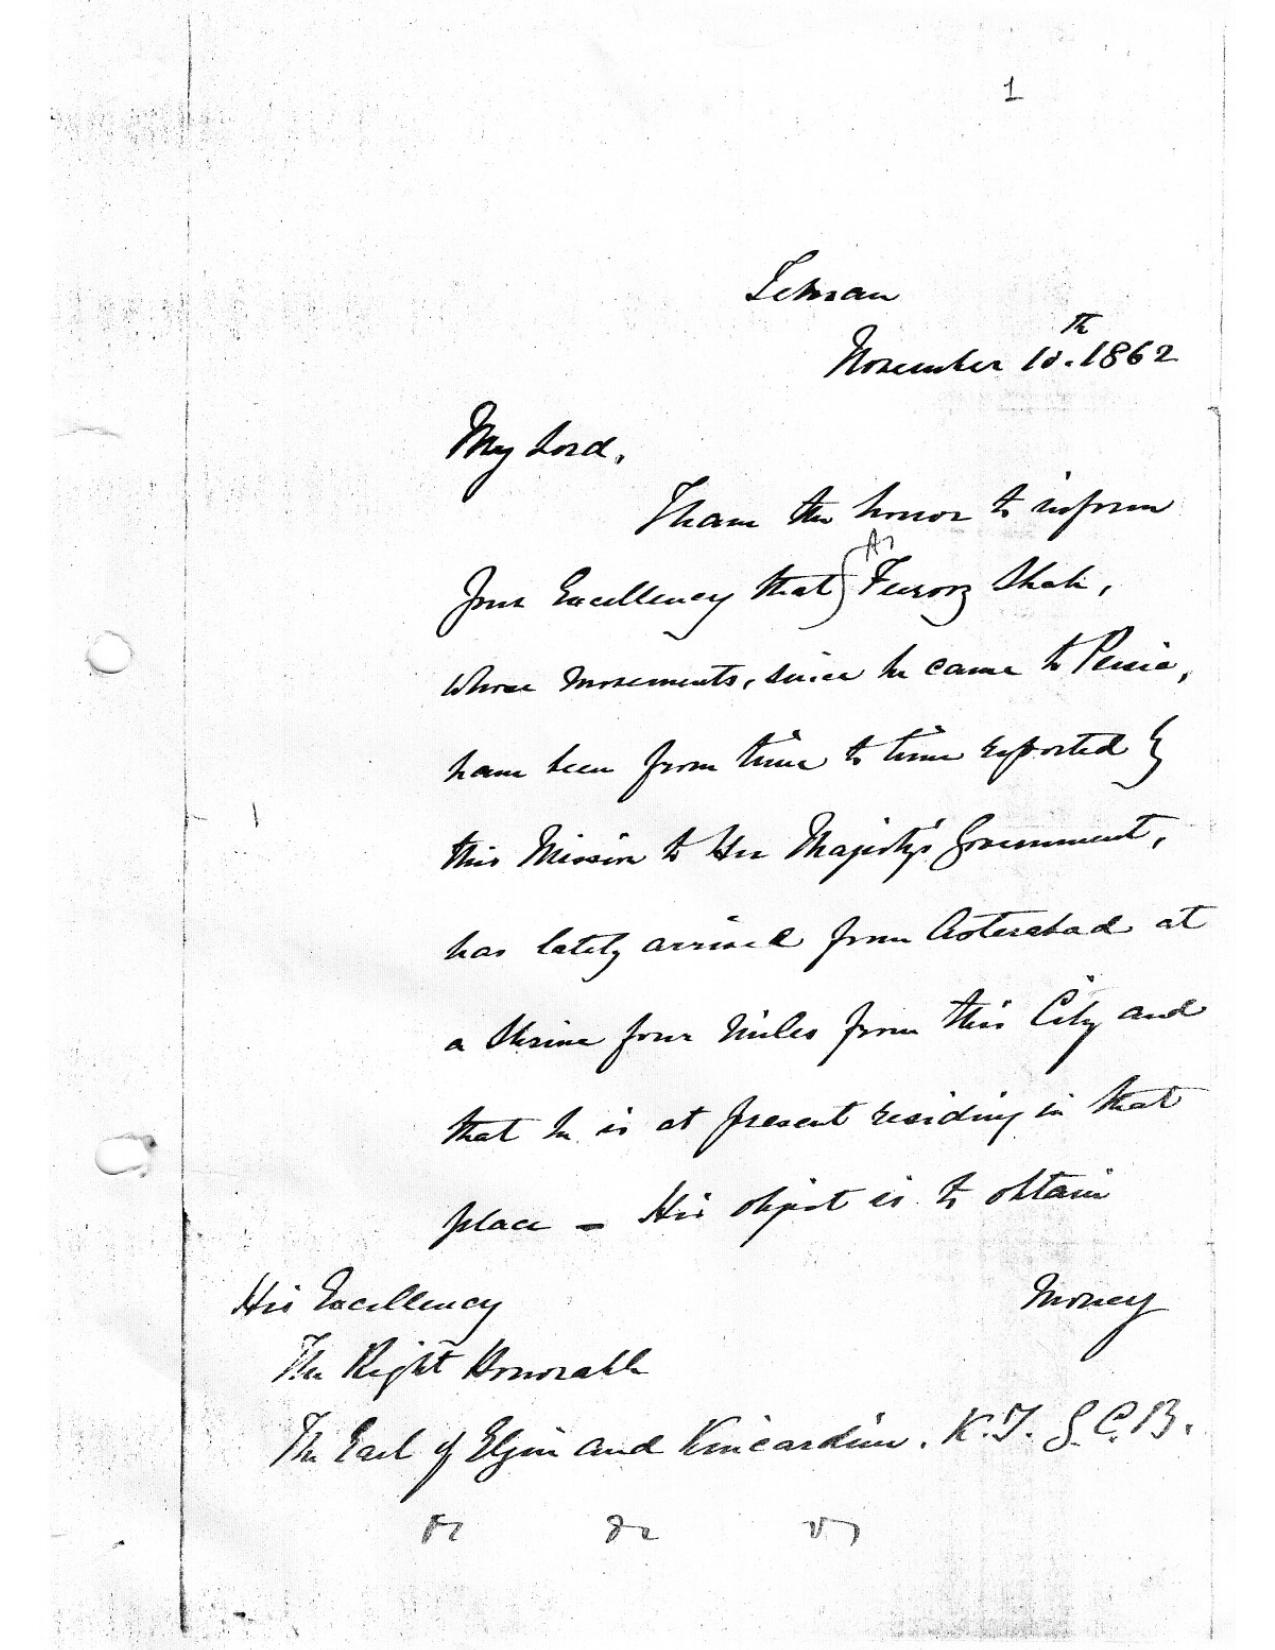 1
Tehran
November 10th. 1862
My Lord,
I have the honor to inform
Your Excellency that Feeroz Shah,
whose movements, since he came to Persia,
have been from time to time reported by
this Mission to Her Majesty's Government,
has lately arrived from Asterabad at
a Shrine four Miles from this City and
that he is at present residing in that
place - His object is to obtain
Money
His Excellency
The Right Honorable
The Earl of Elgin and Kincardine. K.T. G.C.B.